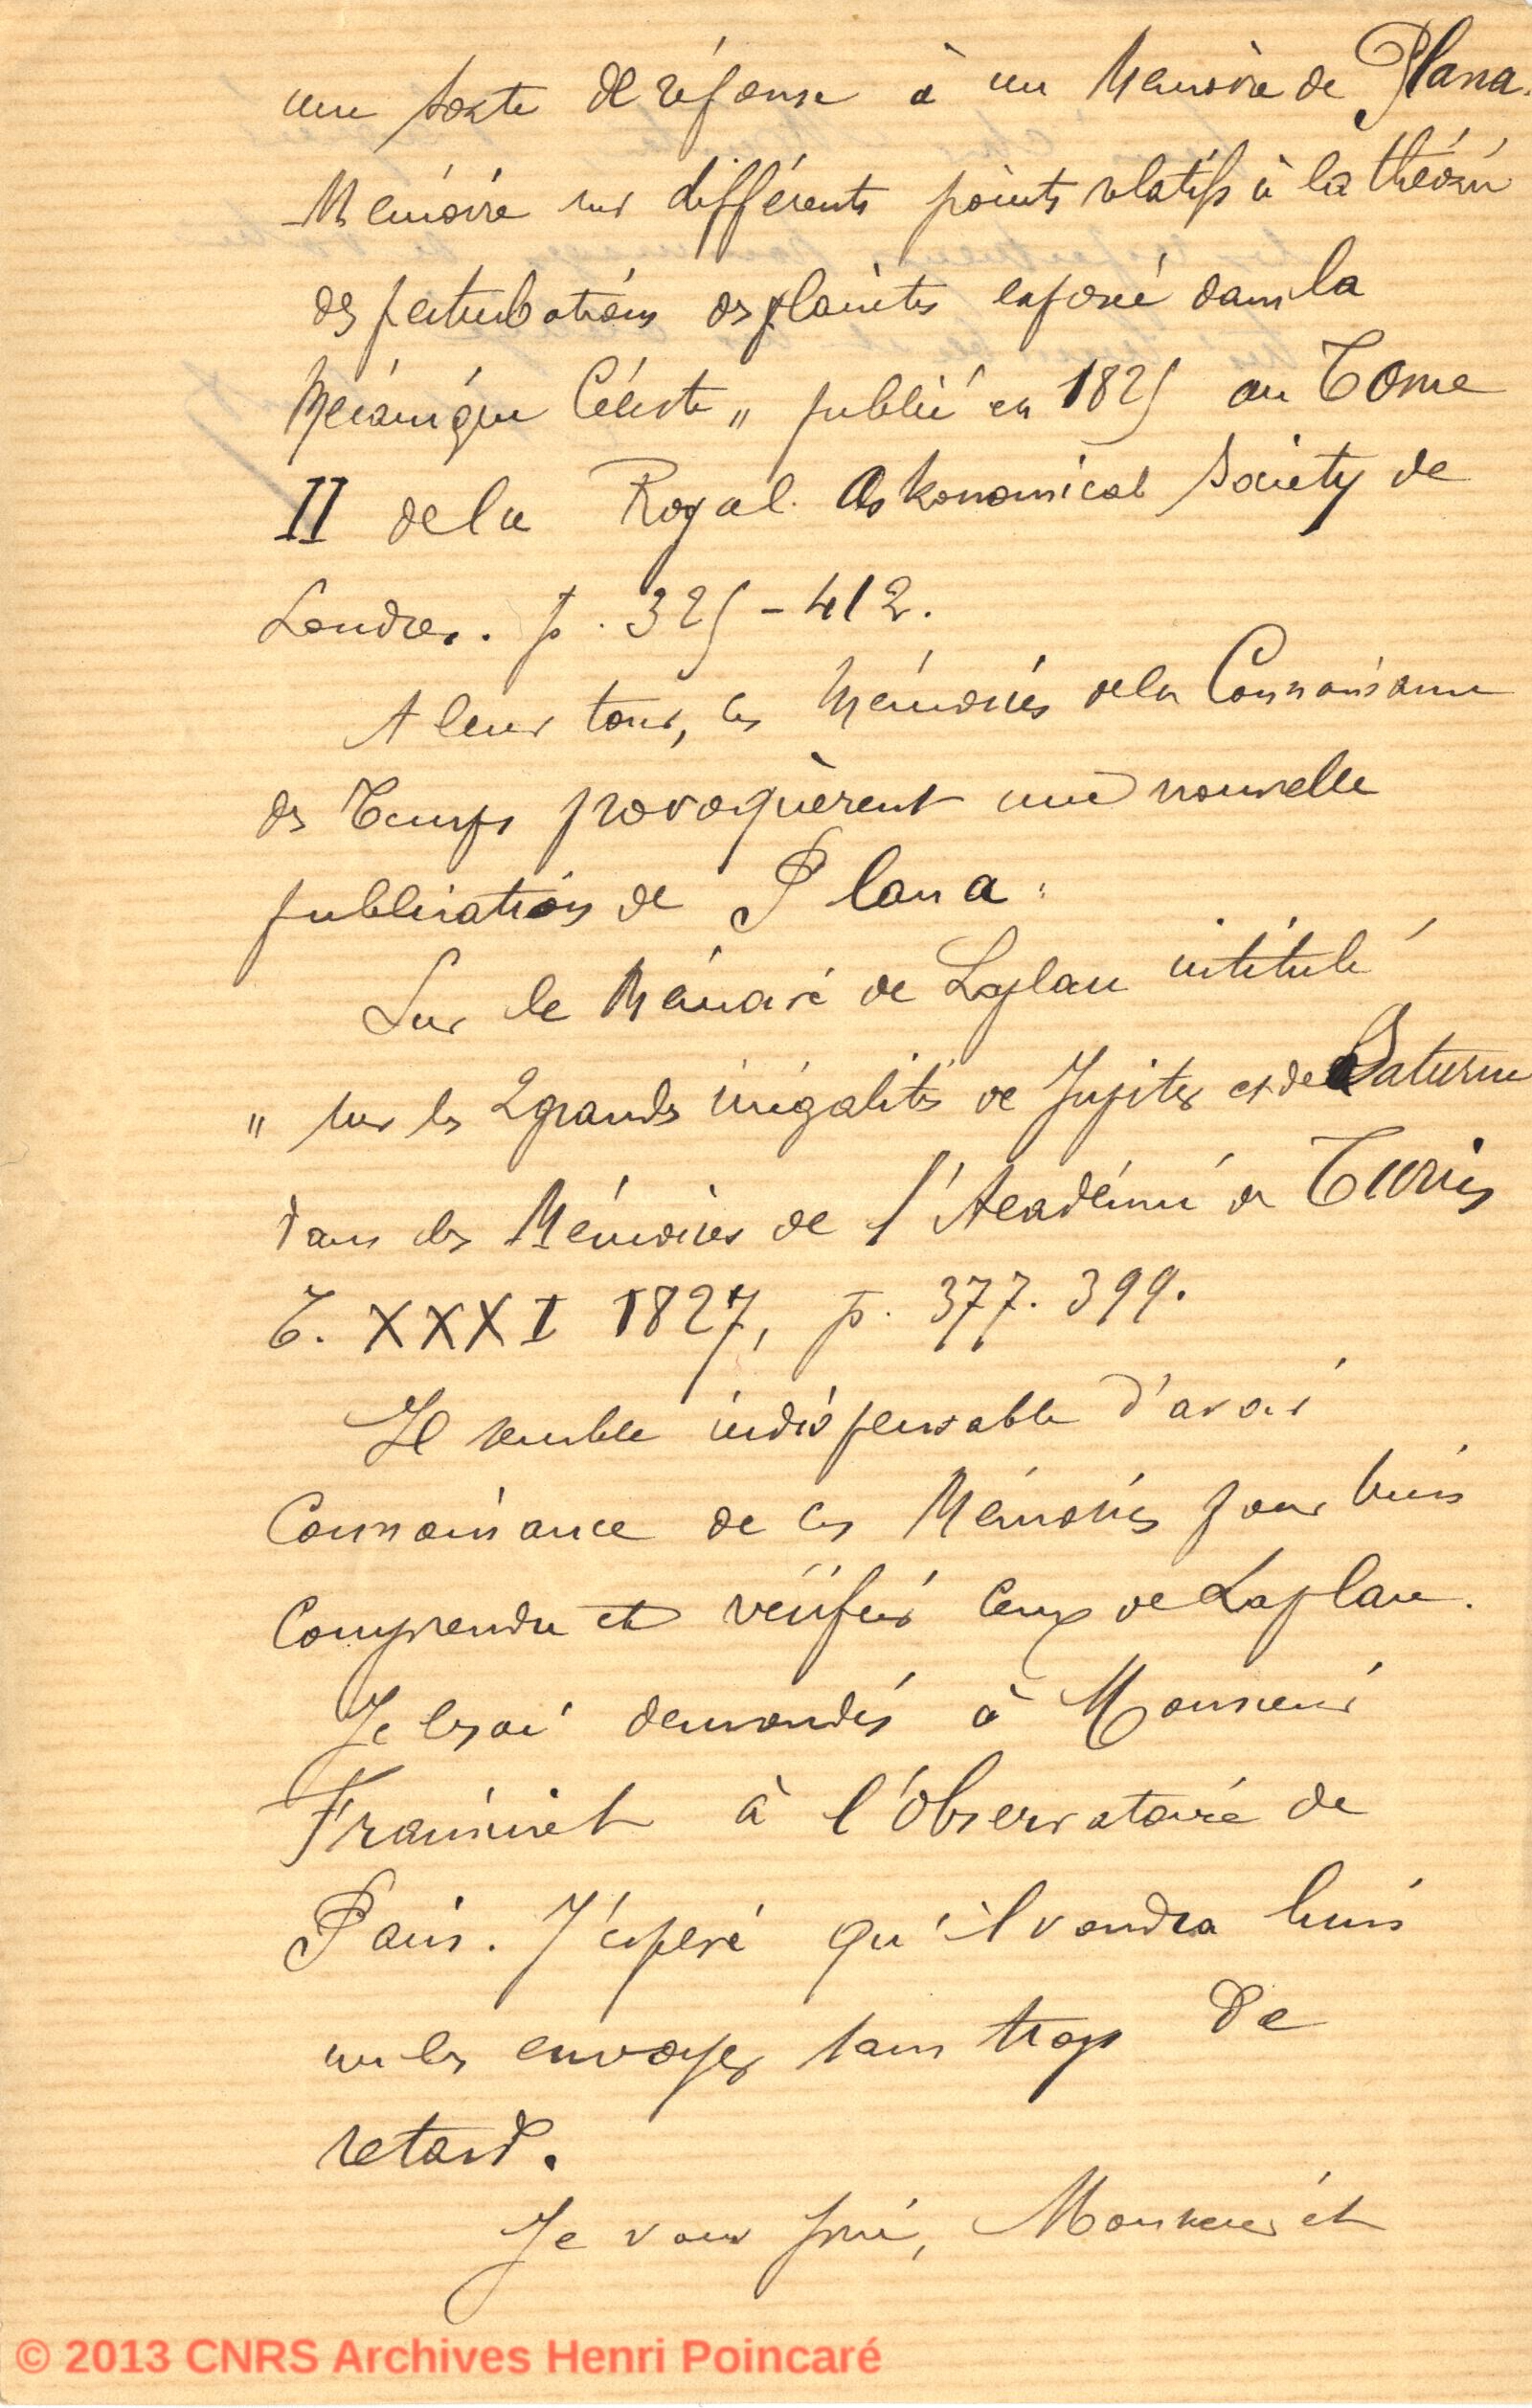 une sorte de réponse à un Mémoire de Plana.
Mémoire sur différents points relatifs à la théorie
des perturbations des planètes exposée dans la
Mécanique Céleste „ publié en 1825 au Tome
II de la Royal. Astronomical Society de
Londres. p. 325-412.
A leur tour, ces Mémoires de la Connaissance
des Temps provoquèrent une nouvelle
publication de Plana :
Sur le Mémoire de Laplace intitulé
„ sur les 2 grandes inégalités de Jupiter et de Saturne
dans les Mémoires de l'Académie de Turin
T. XXXI 1827, p. 377. 399.
Il semble indispensable d'avoir
Connaissance de ces Mémoires pour bien
Comprendre et vérifier ceux de Laplace.
Je les ai demandés à Monsieur
Fraissinet à l'Observatoire de
Paris. J'espère qu'il voudra bien
me les envoyer sans trop de
retard.
Je vous prie, Monsieur et
© 2013 CNRS Archives Henri Poincaré